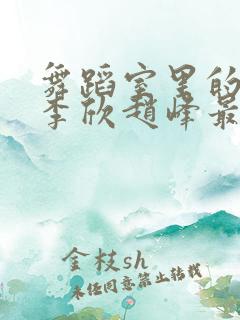 舞蹈室里的
李欣赵峰最
金枝sh
未经同意禁止转载